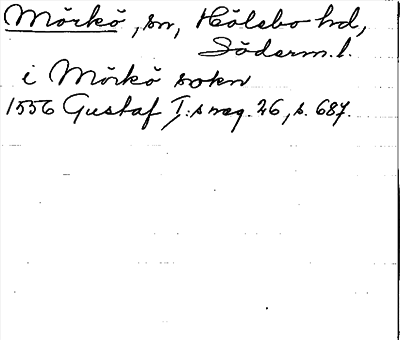 Mörkö, sn, Hölebo hd,
Söderm. l.
i Mörkö sokn
1556 Gustaf I:s reg. 26, s. 687.